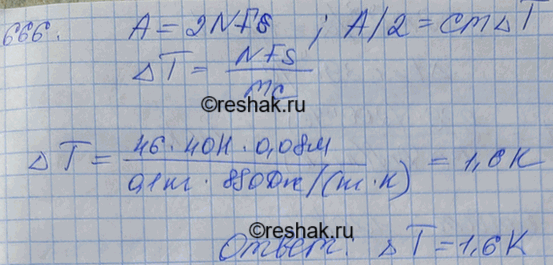 666. A = 2NFs ; A/2 = cmΔT
ΔT = NFs / mc
©reshak.ru
ΔT = 46 · 40Н · 0,08м / 0,1кг · 880Дж/(кг · К) = 1,6К
©reshak.ru
Ответ: ΔT = 1,6К